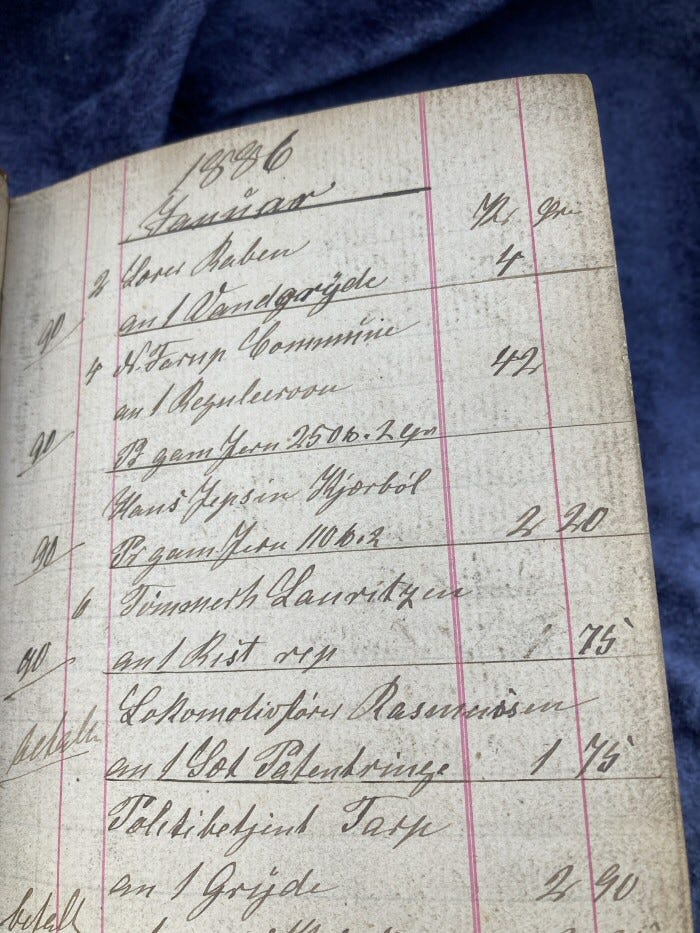 1886
Januar
Kr Øre
2 Lorer Raben
90 an 1 Vandgrÿde 4
4 N. Farup Commune
an 1 Reguleerovn 42
90 Pr gam Jern 250 2
Hans Jepsin Kjærböl
90 Pr gam Jern 110 2 2 20
6 Tömmerh Lauritzen
90 an 1 Rist rep 1 75
Lokomotivförer Rasmussen
betalt an 1 Sæt Patentringe 1 75
Politibetjent Tarp
an 1 Grÿde 2 90
betalt